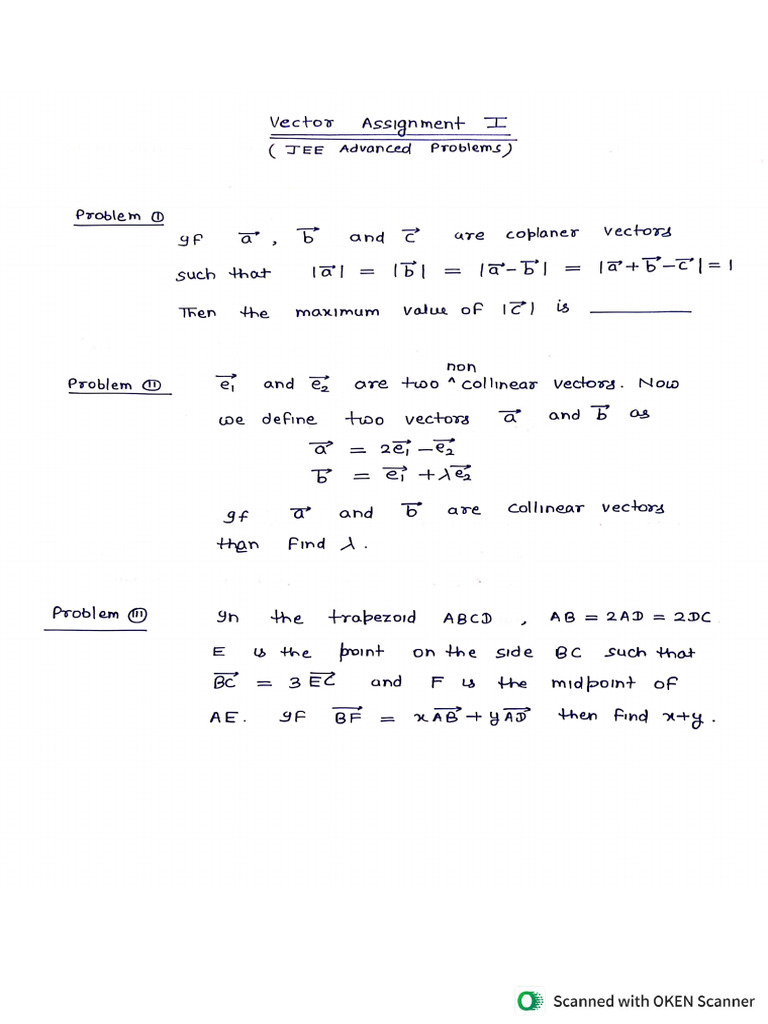 Vector Assignment I
( JEE Advanced Problems )
Problem ①
If a⃗ , b⃗ and c⃗ are coplaner vectors
such that |a⃗| = |b⃗| = |a⃗-b⃗| = |a⃗+b⃗-c⃗| = 1
Then the maximum value of |c⃗| is ________
Problem ⑪ e⃗₁ and e⃗₂ are two ^non collinear vectors. Now
we define two vectors a⃗ and b⃗ as
a⃗ = 2e⃗₁ - e⃗₂
b⃗ = e⃗₁ + λe⃗₂
If a⃗ and b⃗ are collinear vectors
than find λ.
Problem (III) In the trapezoid ABCD , AB = 2AD = 2DC
E is the point on the side BC such that
BC⃗ = 3 EC⃗ and F is the midpoint of
AE. If BF⃗ = xAB⃗ + yAD⃗ then find x+y.
Scanned with OKEN Scanner